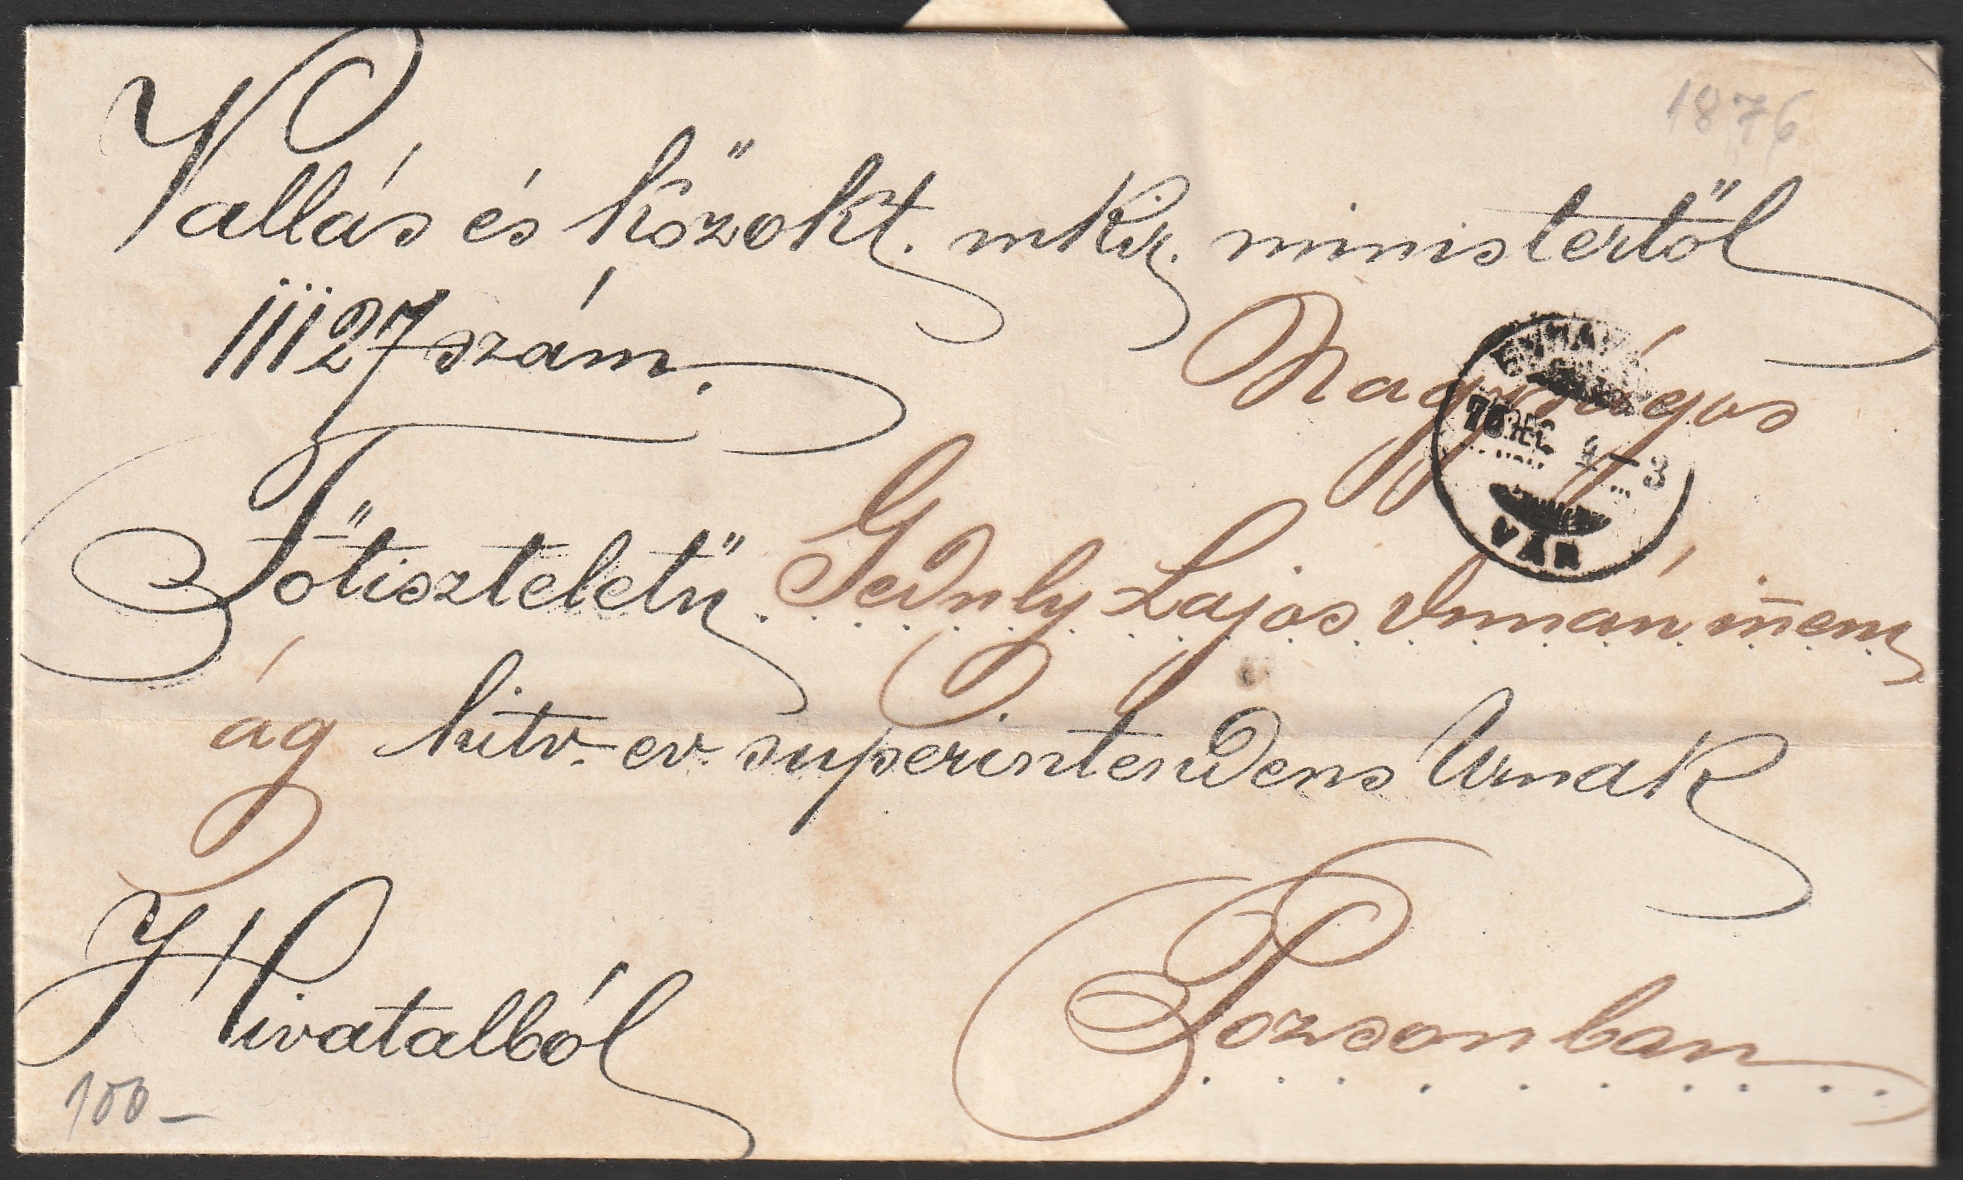 1876
Vallás és közokt. mkir. ministertől
11127 szám.
Nagyságos
Főtiszteletü Geduly Lajos Dunán inneni
ág hitv. ev. superintendens Urnak
Hivatalból
Pozsonban
BUDAPEST
76 DEC 4 3
VÁR
100 —